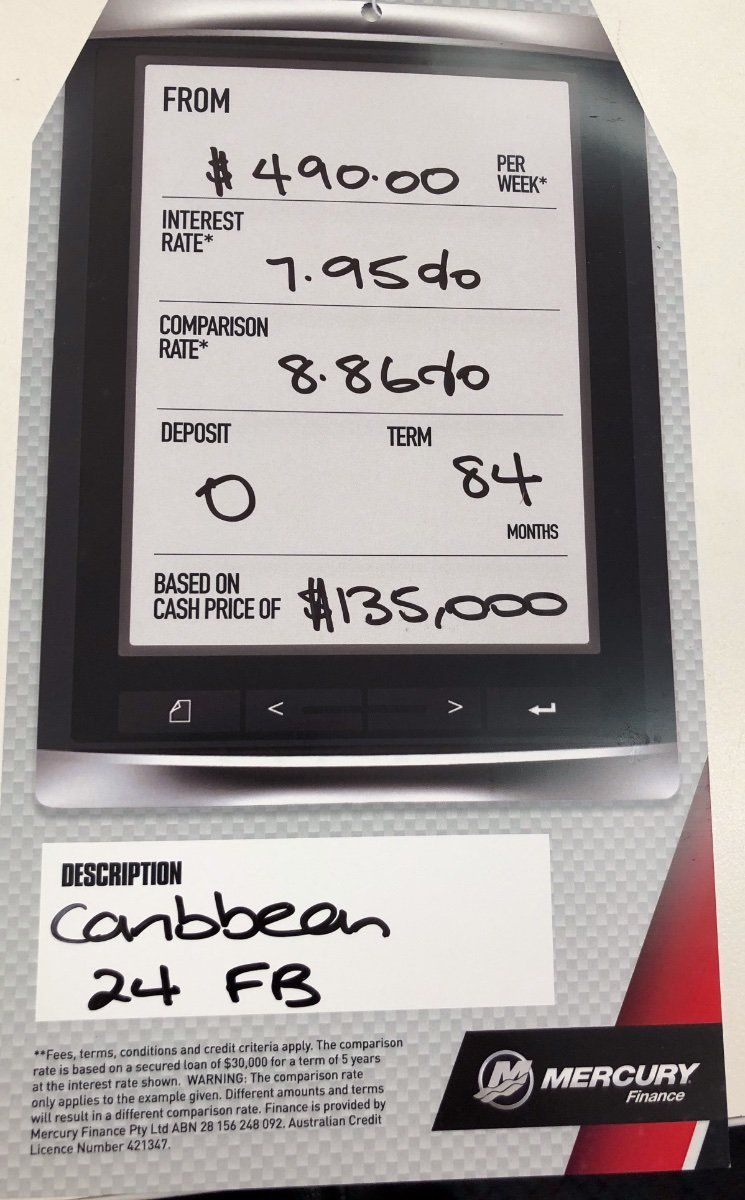 FROM
$ 490.00 PER
WEEK*
INTEREST
RATE*
7.95%
COMPARISON
RATE*
8.86%
DEPOSIT TERM
0 84
MONTHS
BASED ON
CASH PRICE OF $135,000
DESCRIPTION
Caribbean
24 FB
**Fees, terms, conditions and credit criteria apply. The comparison
rate is based on a secured loan of $30,000 for a term of 5 years
at the interest rate shown. WARNING: The comparison rate
only applies to the example given. Different amounts and terms
will result in a different comparison rate. Finance is provided by
Mercury Finance Pty Ltd ABN 28 156 248 092. Australian Credit
Licence Number 421347.
M MERCURY
Finance